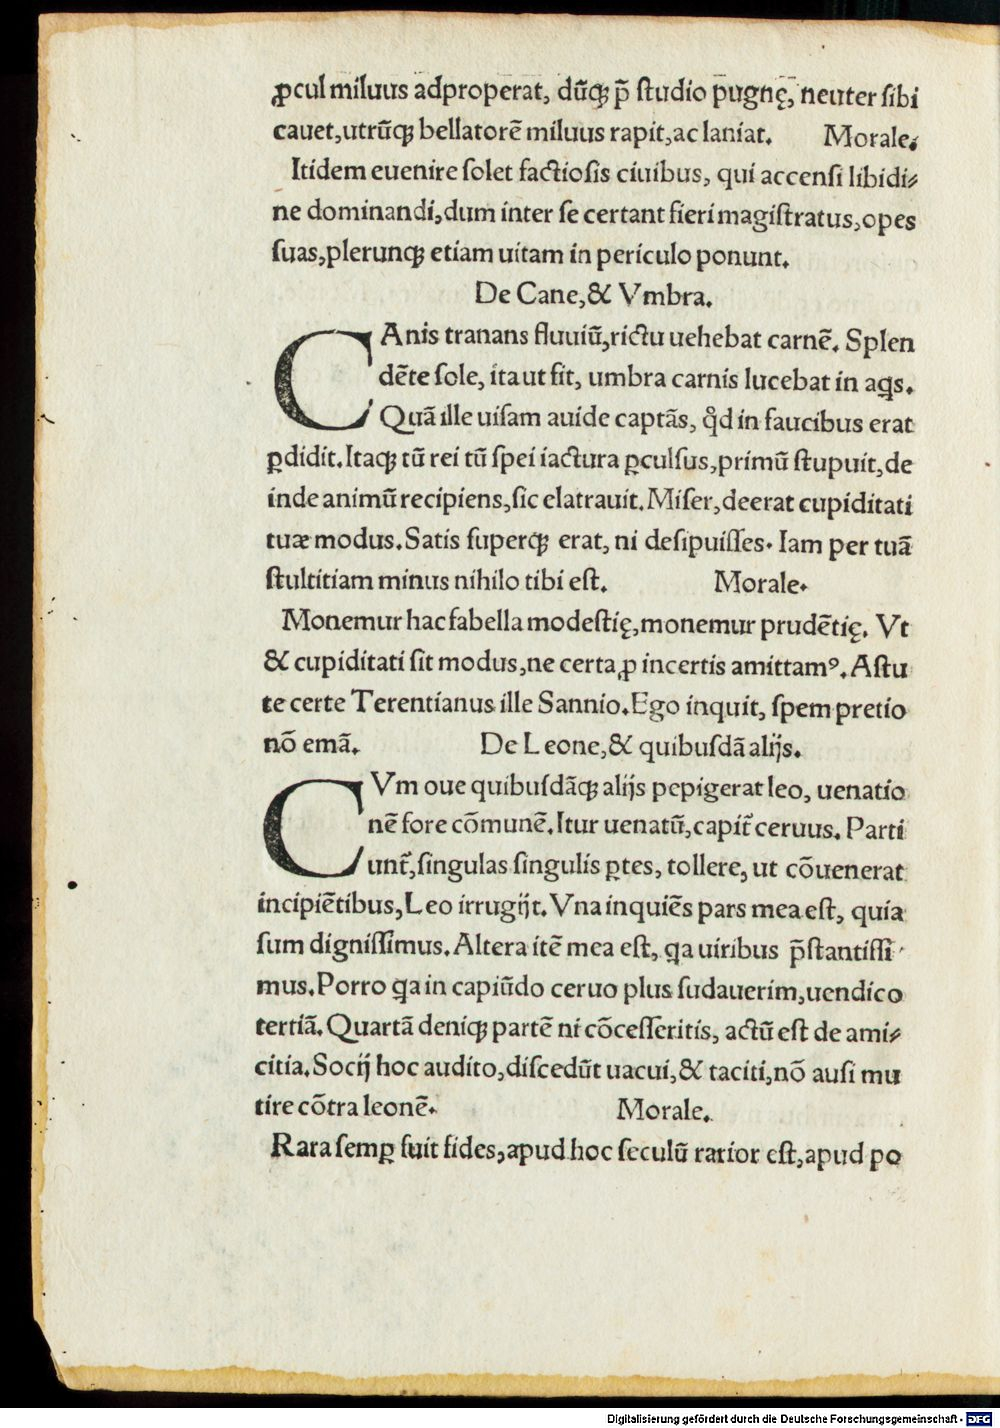 ꝓcul miluus adproperat, dũqꝫ p̄ ſtudio pugnę, neuter ſibi
cauet,utrũqꝫ bellatorẽ miluus rapit,ac laniat. Morale.
Itidem euenire ſolet factioſis ciuibus, qui accenſi libidi⸗
ne dominandi,dum inter ſe certant fieri magiſtratus,opes
ſuas,plerunqꝫ etiam uitam in periculo ponunt.
De Cane,& Vmbra.
CAnis tranans fluuiũ,rictu uehebat carnẽ. Splen
dẽte ſole, ita ut fit, umbra carnis lucebat in aꝗs.
Quã ille uiſam auide captãs, ꝙd in faucibus erat
ꝑdidit.Itaqꝫ tũ rei tũ ſpei iactura ꝑculſus,primũ ſtupuit,de
inde animũ recipiens,ſic elatrauit.Miſer,deerat cupiditati
tuæ modus.Satis ſuperqꝫ erat, ni deſipuiſſes. Iam per tuã
ſtultitiam minus nihilo tibi eſt. Morale.
Monemur hac fabella modeſtię,monemur prudẽtię. Vt
& cupiditati ſit modus,ne certa ꝓ incertis amittamꝰ.Aſtu
te certe Terentianus ille Sannio.Ego inquit, ſpem pretio
nõ emã. De Leone,& quibuſdã alijs.
CVm oue quibuſdãqꝫ alijs pepigerat leo, uenatio
nẽ fore cõmunẽ.Itur uenatũ,capit̃ ceruus. Parti
unt̃,ſingulas ſingulis ꝑtes, tollere, ut cõuenerat
incipiẽtibus,Leo irrugijt.Vna inquiẽs pars mea eſt, quia
ſum digniſſimus.Altera itẽ mea eſt, ꝗa uiribus p̄ſtantiſſi
mus.Porro ꝗa in capiũdo ceruo plus ſudauerim,uendico
tertiã.Quartã deniqꝫ partẽ ni cõceſſeritis, actũ eſt de ami⸗
citia.Socij hoc audito,diſcedũt uacui,& taciti,nõ auſi mu
tire cõtra leonẽ. Morale.
Rara ſemꝑ fuit fides,apud hoc ſeculũ rarior eſt,apud po
Digitalisierung gefördert durch die Deutsche Forschungsgemeinschaft - DFG